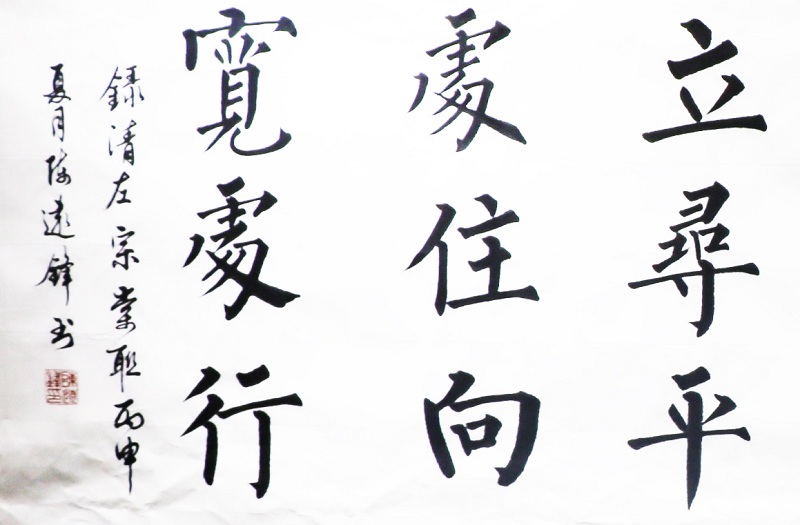 立尋平
處住向
寬處行
錄清左宗棠聯丙申
夏月陳遠鋒书